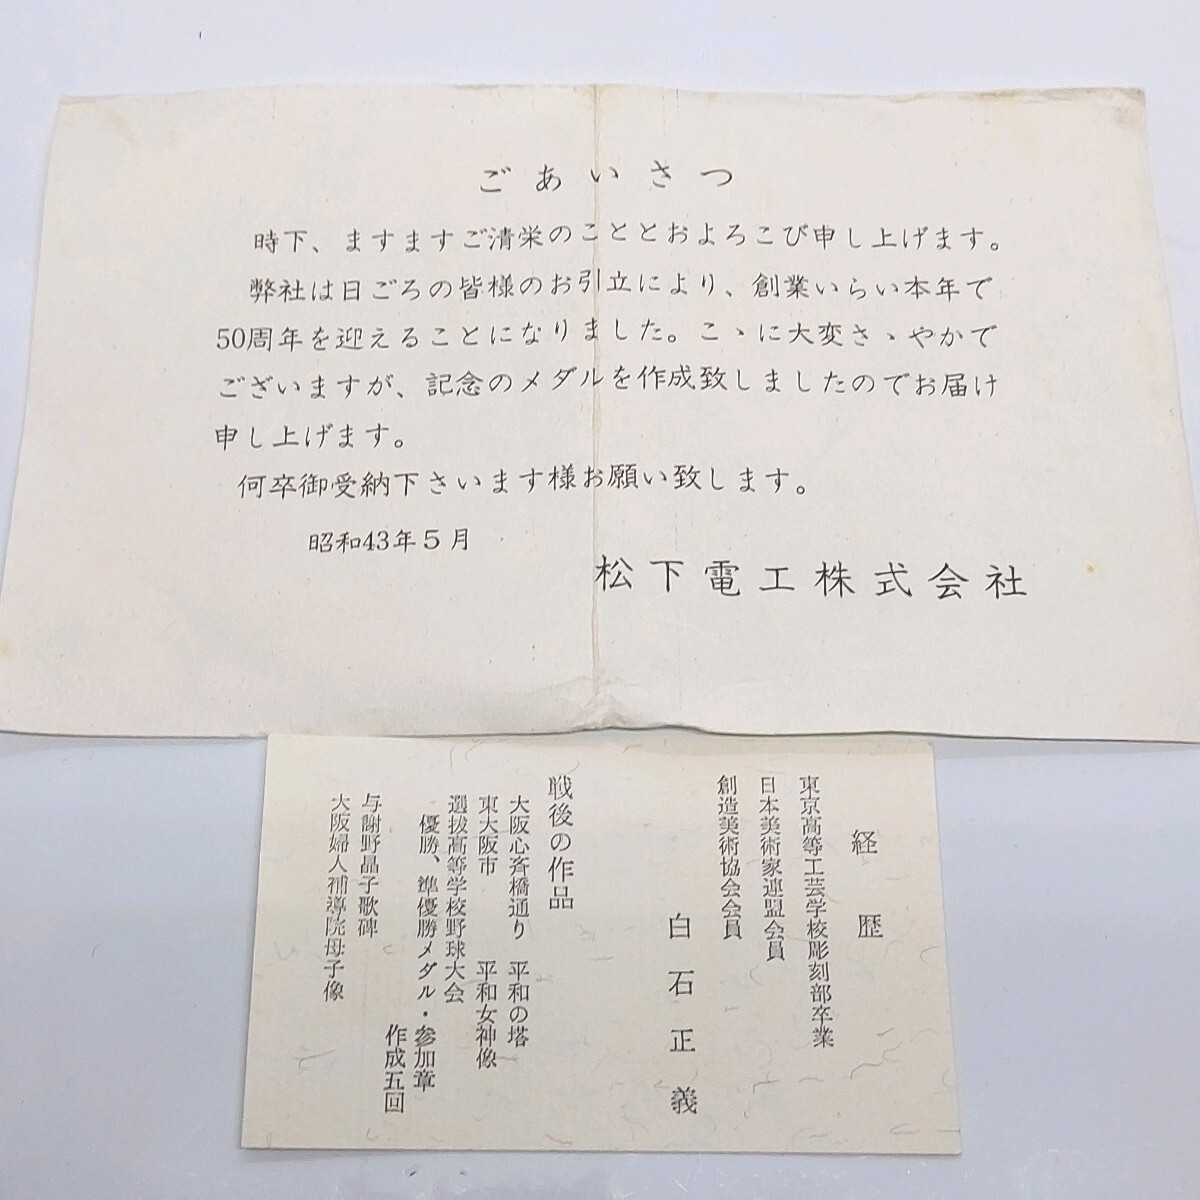 ごあいさつ
時下、ますますご清栄のこととおよろこび申し上げます。
弊社は日ごろの皆様のお引立により、創業いらい本年で
50周年を迎えることになりました。こゝに大変さゝやかで
ございますが、記念のメダルを作成致しましたのでお届け
申し上げます。
何卒御受納下さいます様お願い致します。
昭和43年5月
松下電工株式会社
経歴
東京高等工芸学校彫刻部卒業
日本美術家連盟会員
創造美術協会会員
白石正義
戦後の作品
大阪心斉橋通り 平和の塔
東大阪市 平和女神像
選抜高等学校野球大会
優勝、準優勝メダル・参加章
作成五回
与謝野晶子歌碑
大阪婦人補導院母子像